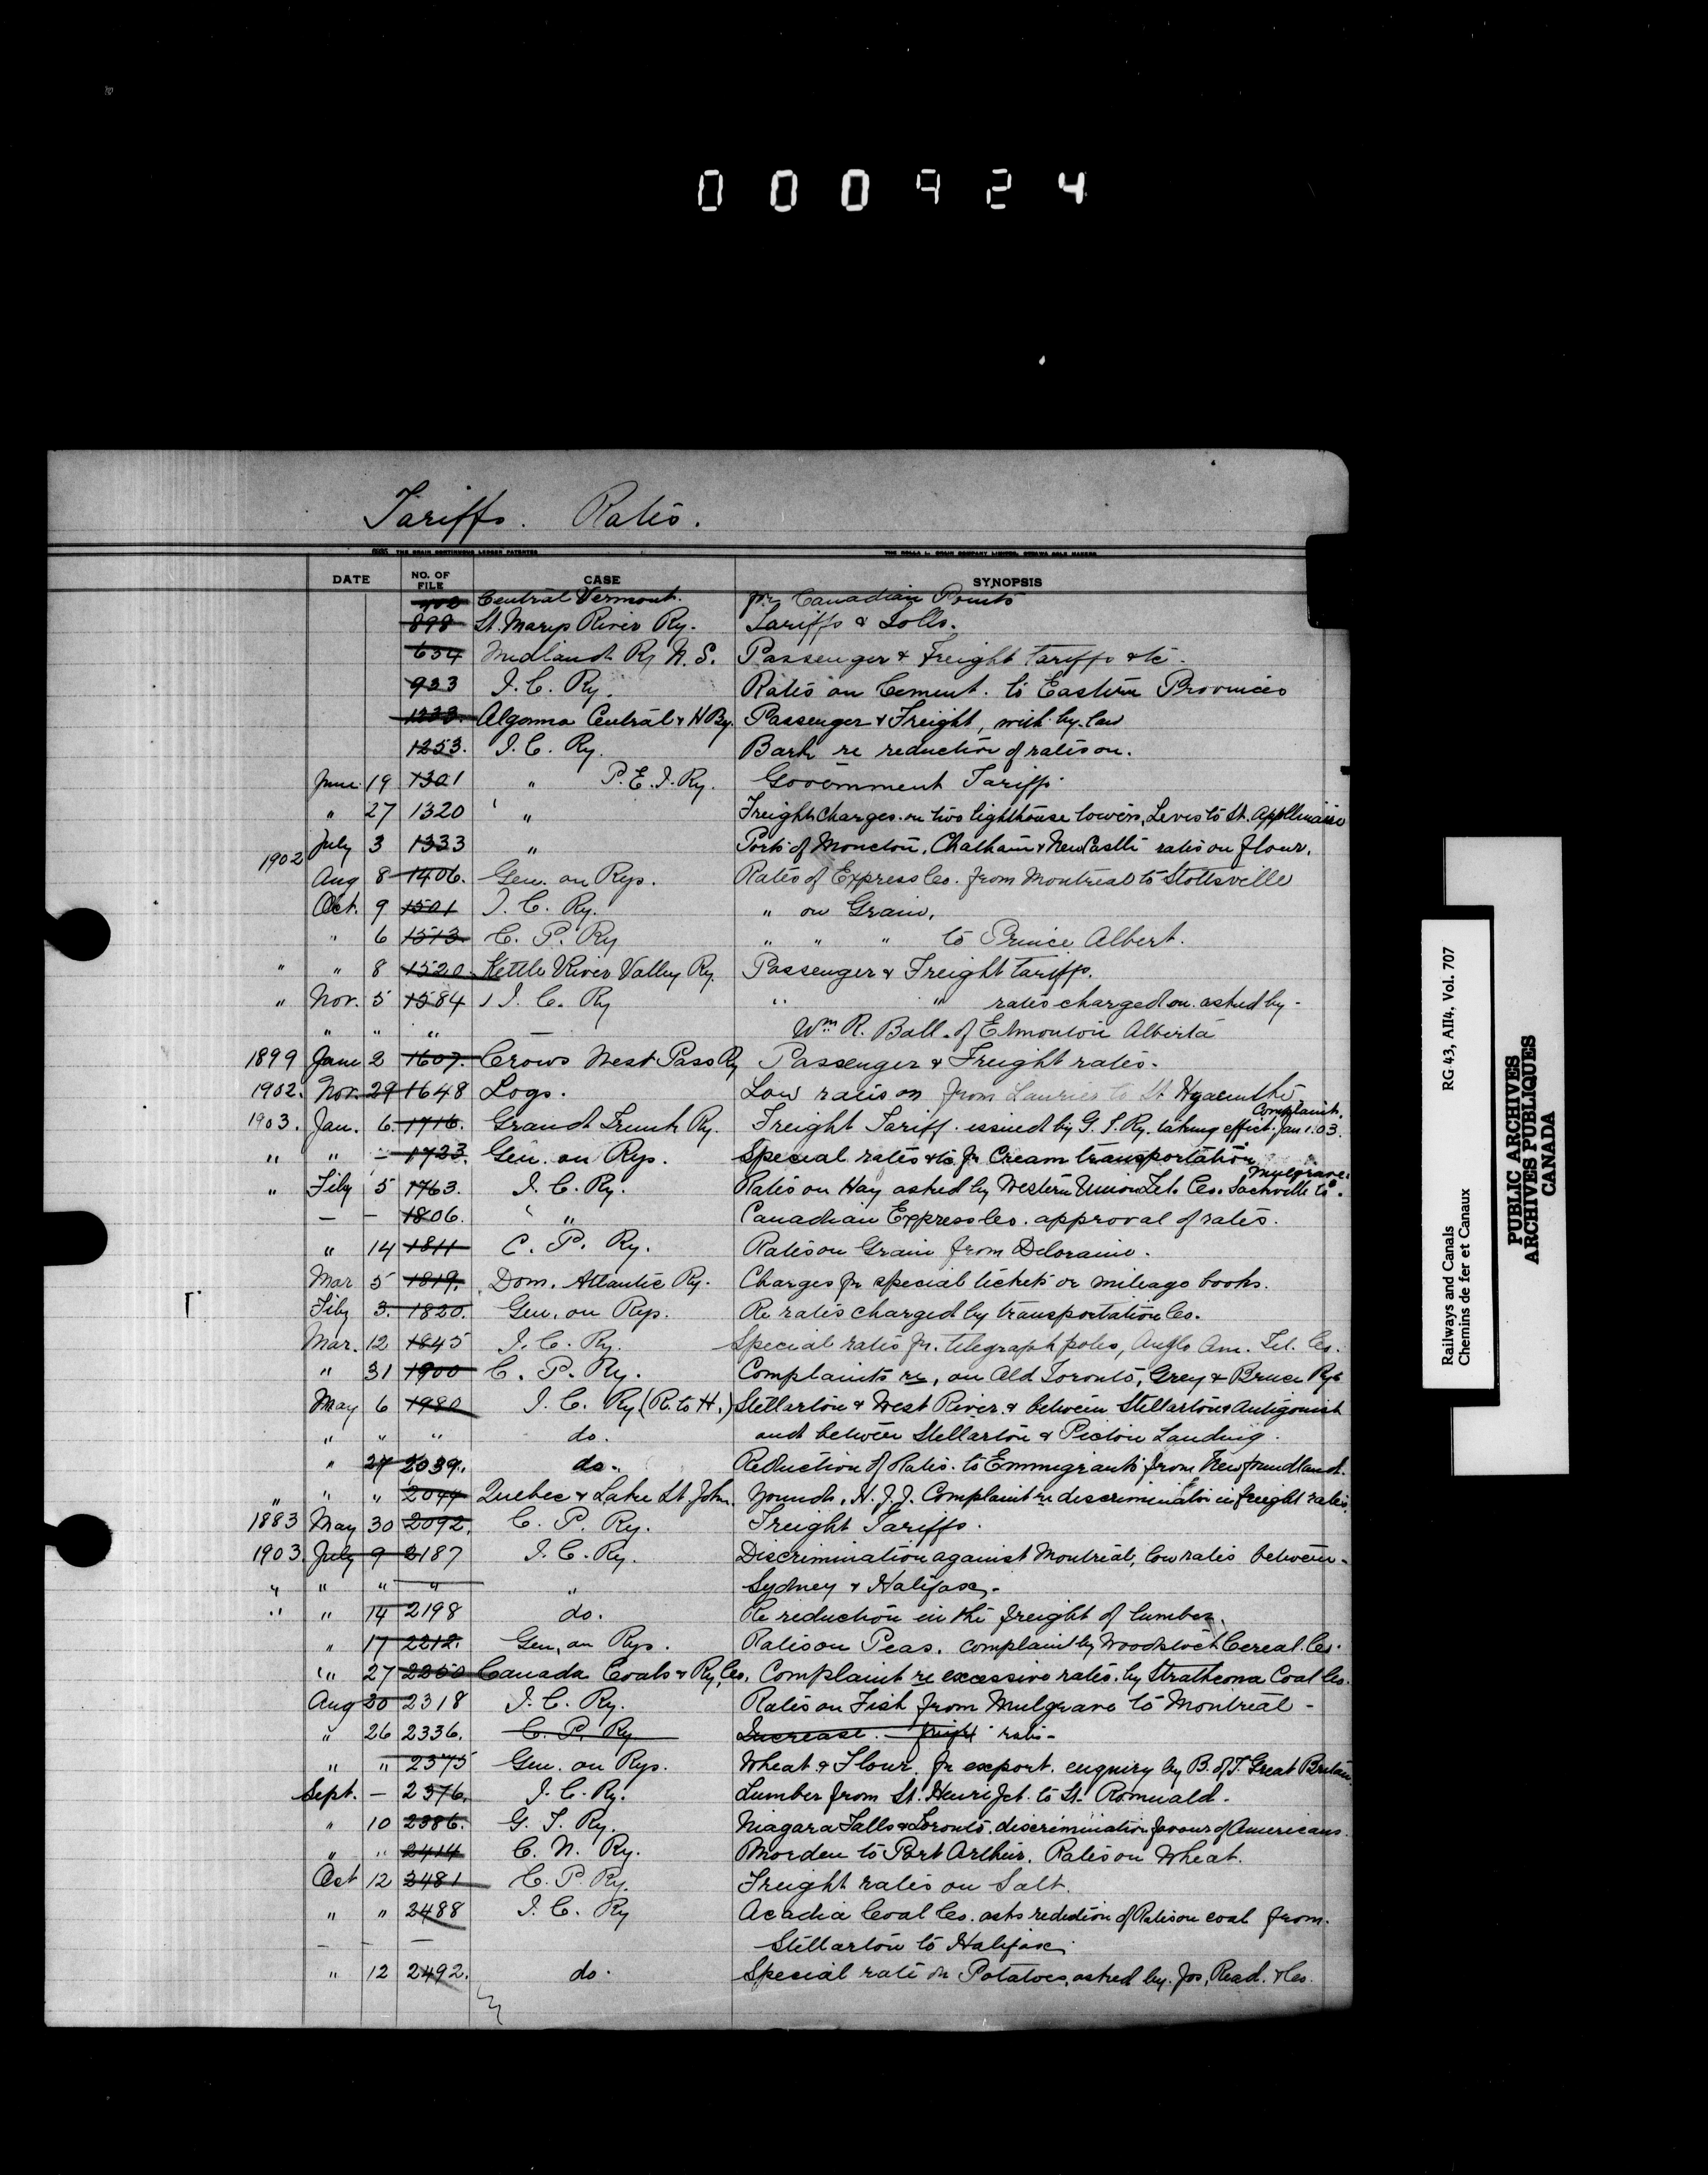 000924
Tariffs. Rates.
DATE NO. OF FILE CASE SYNOPSIS
Central Vermont. Canadian Points
898 St. Marys River Ry. Tariffs & Tolls.
634 Midland Ry N. S. Passenger & Freight tariffs etc.
933 I. C. Ry. Rates on Cement. to Eastern Provinces
1233. Algoma Central & H Ry. Passenger & Freight, with by-law
1253. I. C. Ry. Bark re reduction of rates on.
June 19 1301 " P. E. I. Ry. Government Tariffs
" 27 1320 " Freight Charges on two lighthouse towers, Levis to St. Appllinaire
1902 July 3 1333 " Ports of Moncton, Chatham & New Castle rates on flour.
Aug 8 1406. Gen. on Rys. Rates of Express Co. from Montreal to Stottsville
Oct. 9 1501 I. C. Ry. " on Grain.
" 6 1513. C. P. Ry " " " to Prince Albert.
" " 8 1520 Kettle River Valley Ry. Passenger & Freight tariffs.
" Nov. 5 1584 I. C. Ry " " rates charged on. asked by -
" " " — Wm R. Ball. of Edmonton Alberta
1899 June 2 1607. Crows Nest Pass Ry Passenger & Freight rates.
1902. Nov. 29 1648 Logs. Low rates on from Lauries to St Hyacinthe
1903. Jan. 6. 1716. Grand Trunk Ry. Freight Tariff. issued by G. T. Ry. taking effect. Jan 1. 03. Complaint.
" " - 1723. Gen. on Rys. Special rates etc fr Cream transportation
" Feby 5 1763. I. C. Ry. Rates on Hay asked by Western Union Tel. Co. Sackville to Mulgrave.
— - 1806. " Canadian Express Co. approval of rates.
" 14 1811 C. P. Ry. Rates on Grain from Deloraine.
Mar 5 1819. Dom. Atlantic Ry. Charges fr special tickets or mileage books.
Feby 3. 1820. Gen. on Rys. Re rates charged by transportation Co.
Mar. 12 1845 I. C. Ry. Special rates fr. telegraph poles, Anglo Am. Tel. Co.
" 31 1900 C. P. Ry. Complaints re, on Old Toronto, Grey & Bruce Rys
May 6 1980 I. C. Ry (R. to H.) Stellarton & West River. & between Stellarton & Antigonish
" " " do. and between Stellarton & Pictou Landing.
" 27 2039. do. Reduction of Rates. to Emmigrants from Newfoundland.
" " " 2044 Quebec & Lake St. John. H. J. J. Complaint re discrimination in freight rates.
1883 May 30 2092. C. P. Ry. Freight Tariffs.
1903 July 9 2187 I. C. Ry. Discrimination against Montreal, low rates between -
" " " " " Sydney & Halifax.
" " 14 2198 do. Re reduction in the freight of lumber.
" 17 2212. Gen. on Rys. Rates on Peas. complaint by Woodstock Cereal. Co.
" 27 2250 Canada Coals & Ry. Co. Complaint re excessive rates. by Strathcona Coal Co.
Aug 20 2318 I. C. Ry. Rates on Fish from Mulgrave to Montreal -
" 26 2336. C. P. Ry Increase. freight rates -
" " 2375 Gen. on Rys. Wheat & Flour. fr export. enquiry by B. of T. Great Britain.
Sept. - 2376. I. C. Ry. Lumber from St. Henri Jct. to St. Romuald.
" 10 2386. G. T. Ry. Niagara Falls & Toronto. discrimination favour of Americans.
" " 2414 C. N. Ry. Morden to Port Arthur. Rates on Wheat.
Oct 12 2481 C. P. Ry. Freight rates on Salt.
" " 2488 I. C. Ry Acadia Coal Co. asks reduction of Rates on coal from.
— - — Stellarton to Halifax.
" 12 2492. do. Special rate on Potatoes, asked by. Jos, Read. & Co.
Railways and Canals RG 43, AII4, Vol. 707
Chemins de fer et Canaux
PUBLIC ARCHIVES
ARCHIVES PUBLIQUES
CANADA